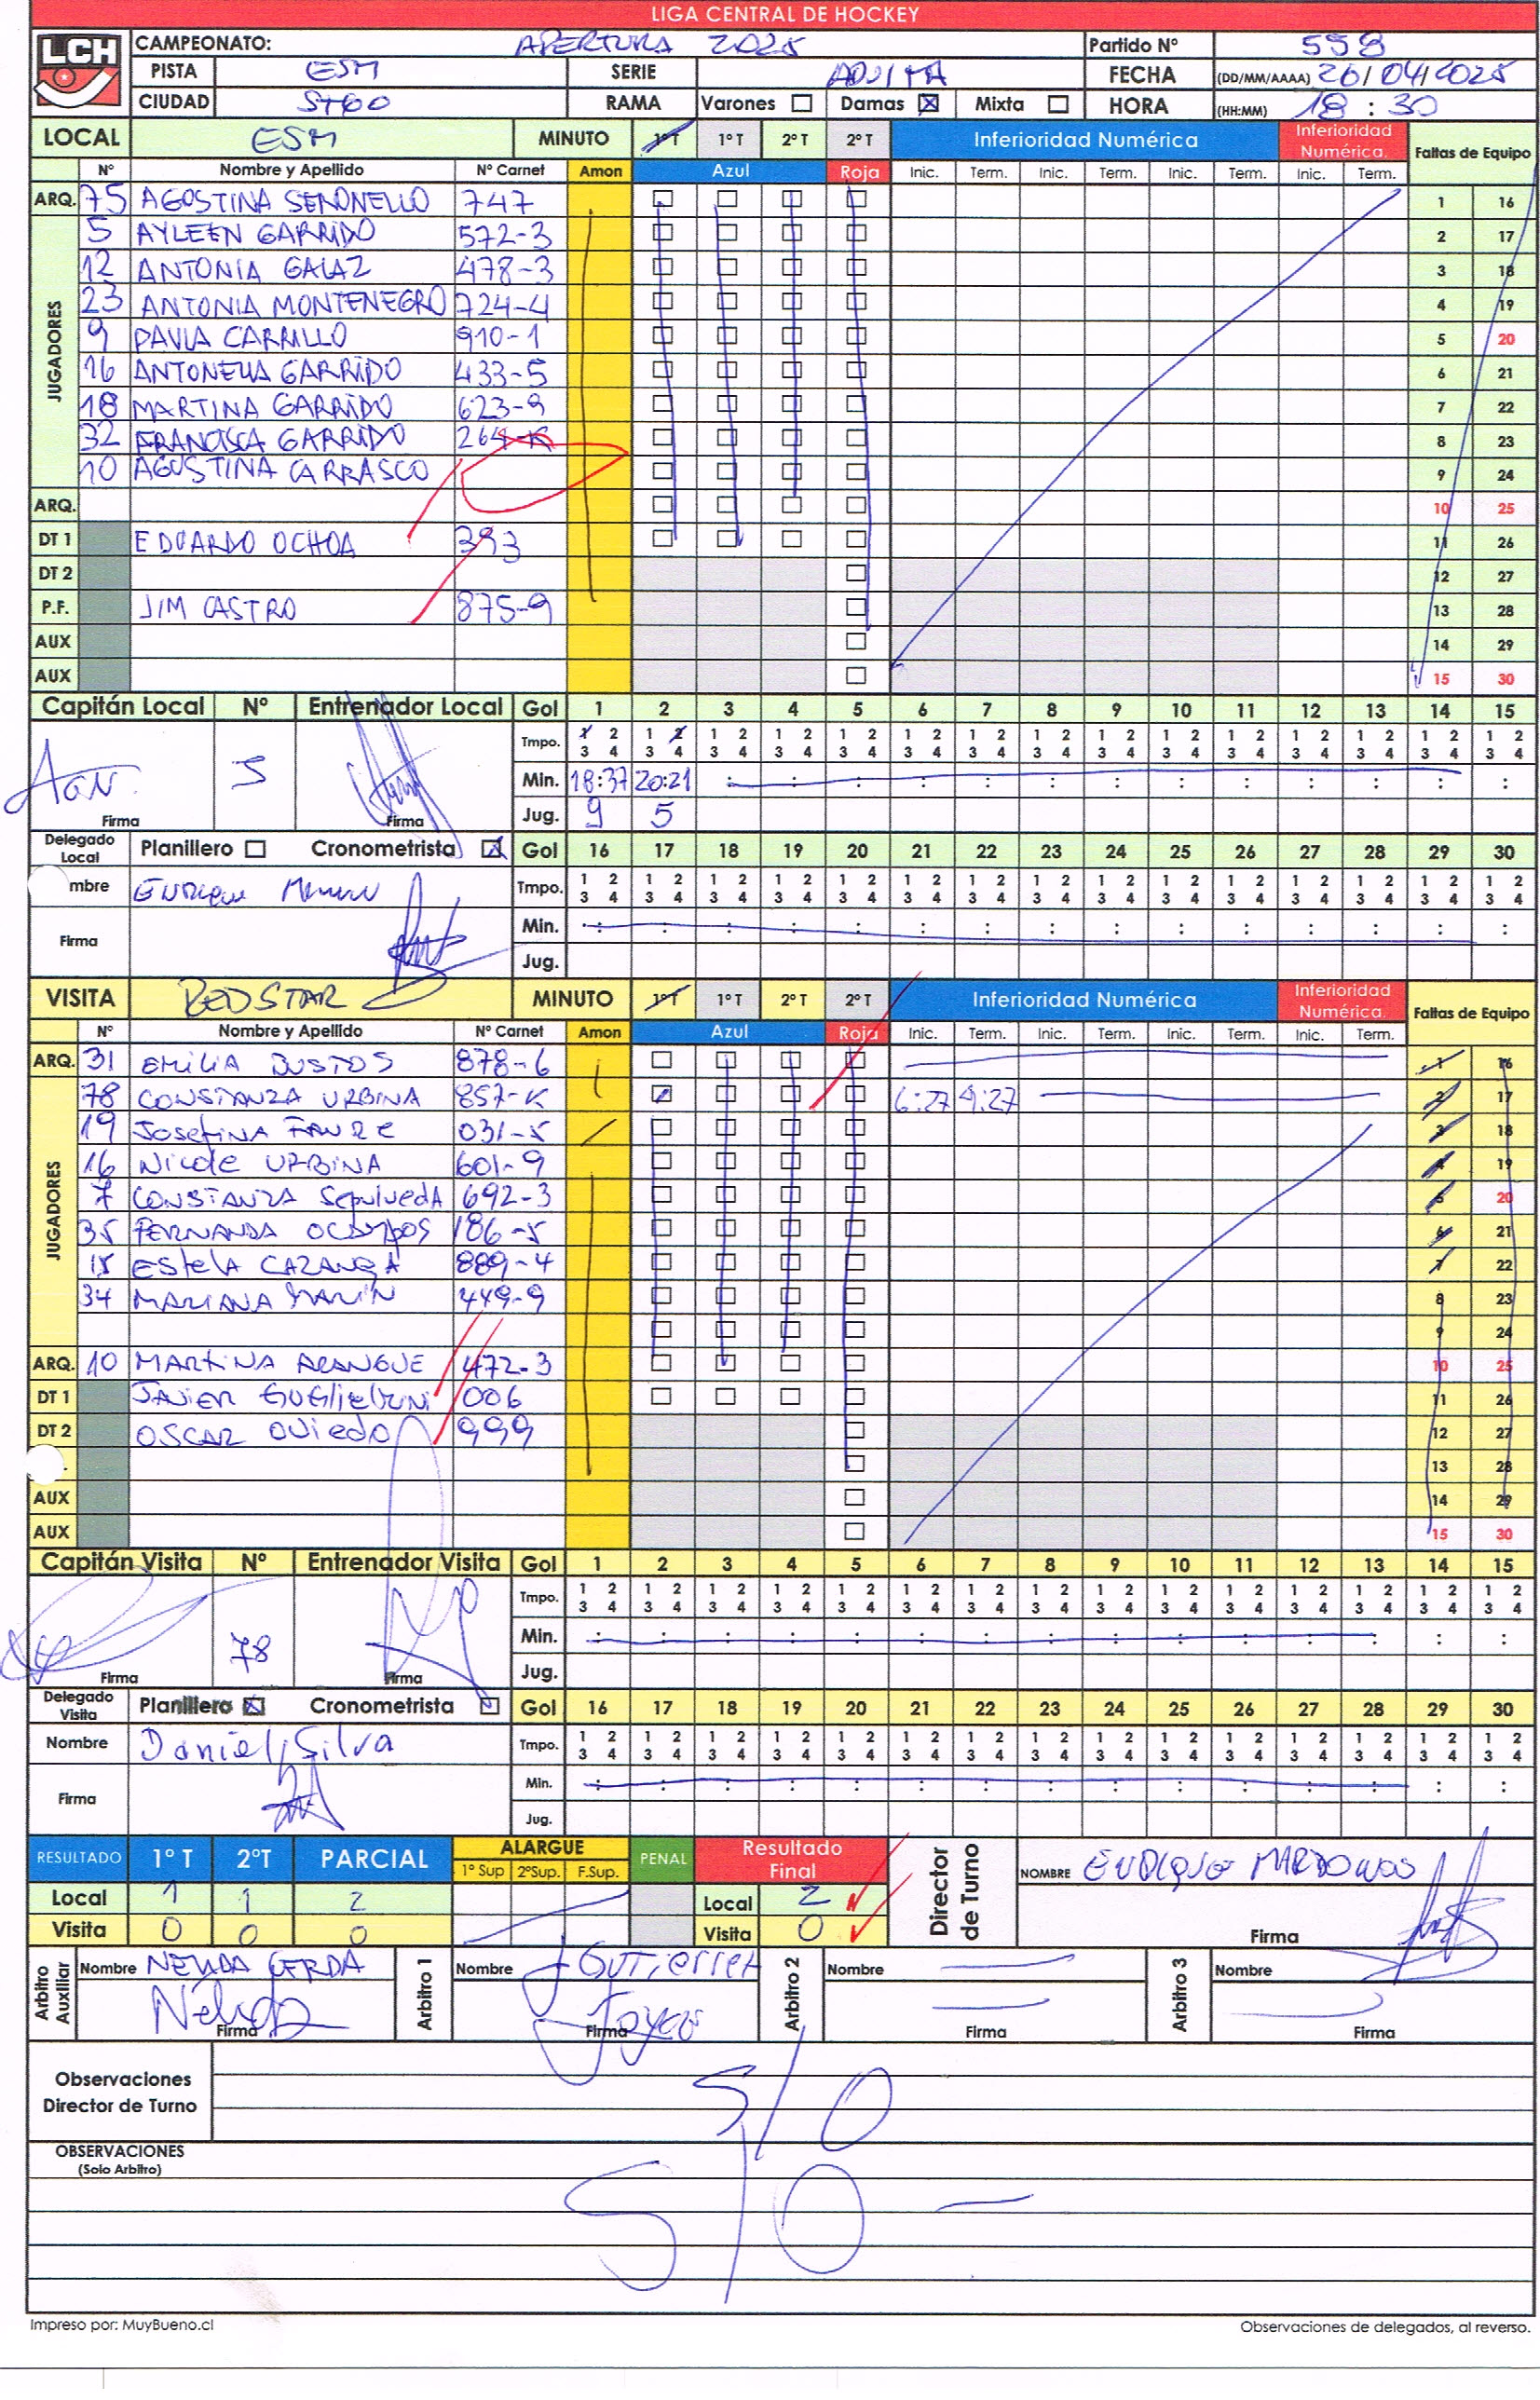 LIGA CENTRAL DE HOCKEY
LCH
CAMPEONATO: APERTURA 2025 Partido Nº 558
PISTA ESM SERIE ADULTA FECHA (DD/MM/AAAA) 26/04/2025
CIUDAD STGO RAMA Varones Damas Mixta HORA (HH:MM) 18:30
LOCAL ESM MINUTO 1º T 1º T 2º T 2º T Inferioridad Numérica Inferioridad Numérica. Faltas de Equipo
Nº Nombre y Apellido Nº Carnet Amon Azul Roja Inic. Term. Inic. Term. Inic. Term. Inic. Term.
JUGADORES
ARQ. 75 AGOSTINA SERONELLO 747 1 16
5 AYLEEN GARRIDO 572-3 2 17
12 ANTONIA GALAZ 478-3 3 18
23 ANTONIA MONTENEGRO 724-4 4 19
9 PAULA CARRILLO 910-1 5 20
16 ANTONELLA GARRIDO 433-5 6 21
18 MARTINA GARRIDO 623-9 7 22
32 FRANCISCA GARRIDO 264-K 8 23
10 AGUSTINA CARRASCO 9 24
ARQ. 10 25
DT 1 EDUARDO OCHOA 393 11 26
DT 2 12 27
P.F. JIM CASTRO 875-9 13 28
AUX 14 29
AUX 15 30
Capitán Local Nº Entrenador Local Gol 1 2 3 4 5 6 7 8 9 10 11 12 13 14 15
Tmpo. 1 2 1 2 1 2 1 2 1 2 1 2 1 2 1 2 1 2 1 2 1 2 1 2 1 2 1 2 1 2
3 4 3 4 3 4 3 4 3 4 3 4 3 4 3 4 3 4 3 4 3 4 3 4 3 4 3 4 3 4
5 Min. 18:37 20:21 : : : : : : : : : : : : :
Firma Firma Jug. 9 5
Delegado Local Planillero Cronometrista Gol 16 17 18 19 20 21 22 23 24 25 26 27 28 29 30
mbre Enrique Tmpo. 1 2 1 2 1 2 1 2 1 2 1 2 1 2 1 2 1 2 1 2 1 2 1 2 1 2 1 2 1 2
3 4 3 4 3 4 3 4 3 4 3 4 3 4 3 4 3 4 3 4 3 4 3 4 3 4 3 4 3 4
Firma Min. : : : : : : : : : : : : : : :
Jug.
VISITA REDSTAR MINUTO 1º T 1º T 2º T 2º T Inferioridad Numérica Inferioridad Numérica. Faltas de Equipo
Nº Nombre y Apellido Nº Carnet Amon Azul Roja Inic. Term. Inic. Term. Inic. Term. Inic. Term.
JUGADORES
ARQ. 31 EMILIA BUSTOS 878-6 1 16
78 CONSTANZA URBINA 857-K 6:27 9:27 2 17
19 Josefina FAURE 031-5 3 18
16 Nicole URBINA 601-9 4 19
7 CONSTANZA SepulvedA 692-3 5 20
35 FERNANDA OCAMPOS 186-5 6 21
15 EstelA CAZANGA 889-4 7 22
34 MARIANA MARIN 449-9 8 23
9 24
ARQ. 10 MARTINA ARANGUE 472-3 10 25
DT 1 JAVIER 006 11 26
DT 2 OSCAR OVIEDO 999 12 27
13 28
AUX 14 29
AUX 15 30
Capitán Visita Nº Entrenador Visita Gol 1 2 3 4 5 6 7 8 9 10 11 12 13 14 15
Tmpo. 1 2 1 2 1 2 1 2 1 2 1 2 1 2 1 2 1 2 1 2 1 2 1 2 1 2 1 2 1 2
3 4 3 4 3 4 3 4 3 4 3 4 3 4 3 4 3 4 3 4 3 4 3 4 3 4 3 4 3 4
78 Min. : : : : : : : : : : : : : : :
Firma Firma Jug.
Delegado Visita Planillero Cronometrista Gol 16 17 18 19 20 21 22 23 24 25 26 27 28 29 30
Nombre Daniel Silva Tmpo. 1 2 1 2 1 2 1 2 1 2 1 2 1 2 1 2 1 2 1 2 1 2 1 2 1 2 1 2 1 2
3 4 3 4 3 4 3 4 3 4 3 4 3 4 3 4 3 4 3 4 3 4 3 4 3 4 3 4 3 4
Firma Min. : : : : : : : : : : : : : : :
Jug.
RESULTADO 1º T 2ºT PARCIAL ALARGUE PENAL Resultado Final Director de Turno NOMBRE ENRIQUE MARDONES
1º Sup 2ºSup. F.Sup.
Local 1 1 2 Local 2
Visita 0 0 0 Visita 0 Firma
Arbitro Auxiliar Nombre NELIDA CERDA Arbitro 1 Nombre J GUTIERREZ Arbitro 2 Nombre Arbitro 3 Nombre
Nelida Firma Firma Firma Firma
Observaciones Director de Turno S/O
OBSERVACIONES
(Solo Arbitro)
S/O
Impreso por: MuyBueno.cl Observaciones de delegados, al reverso.